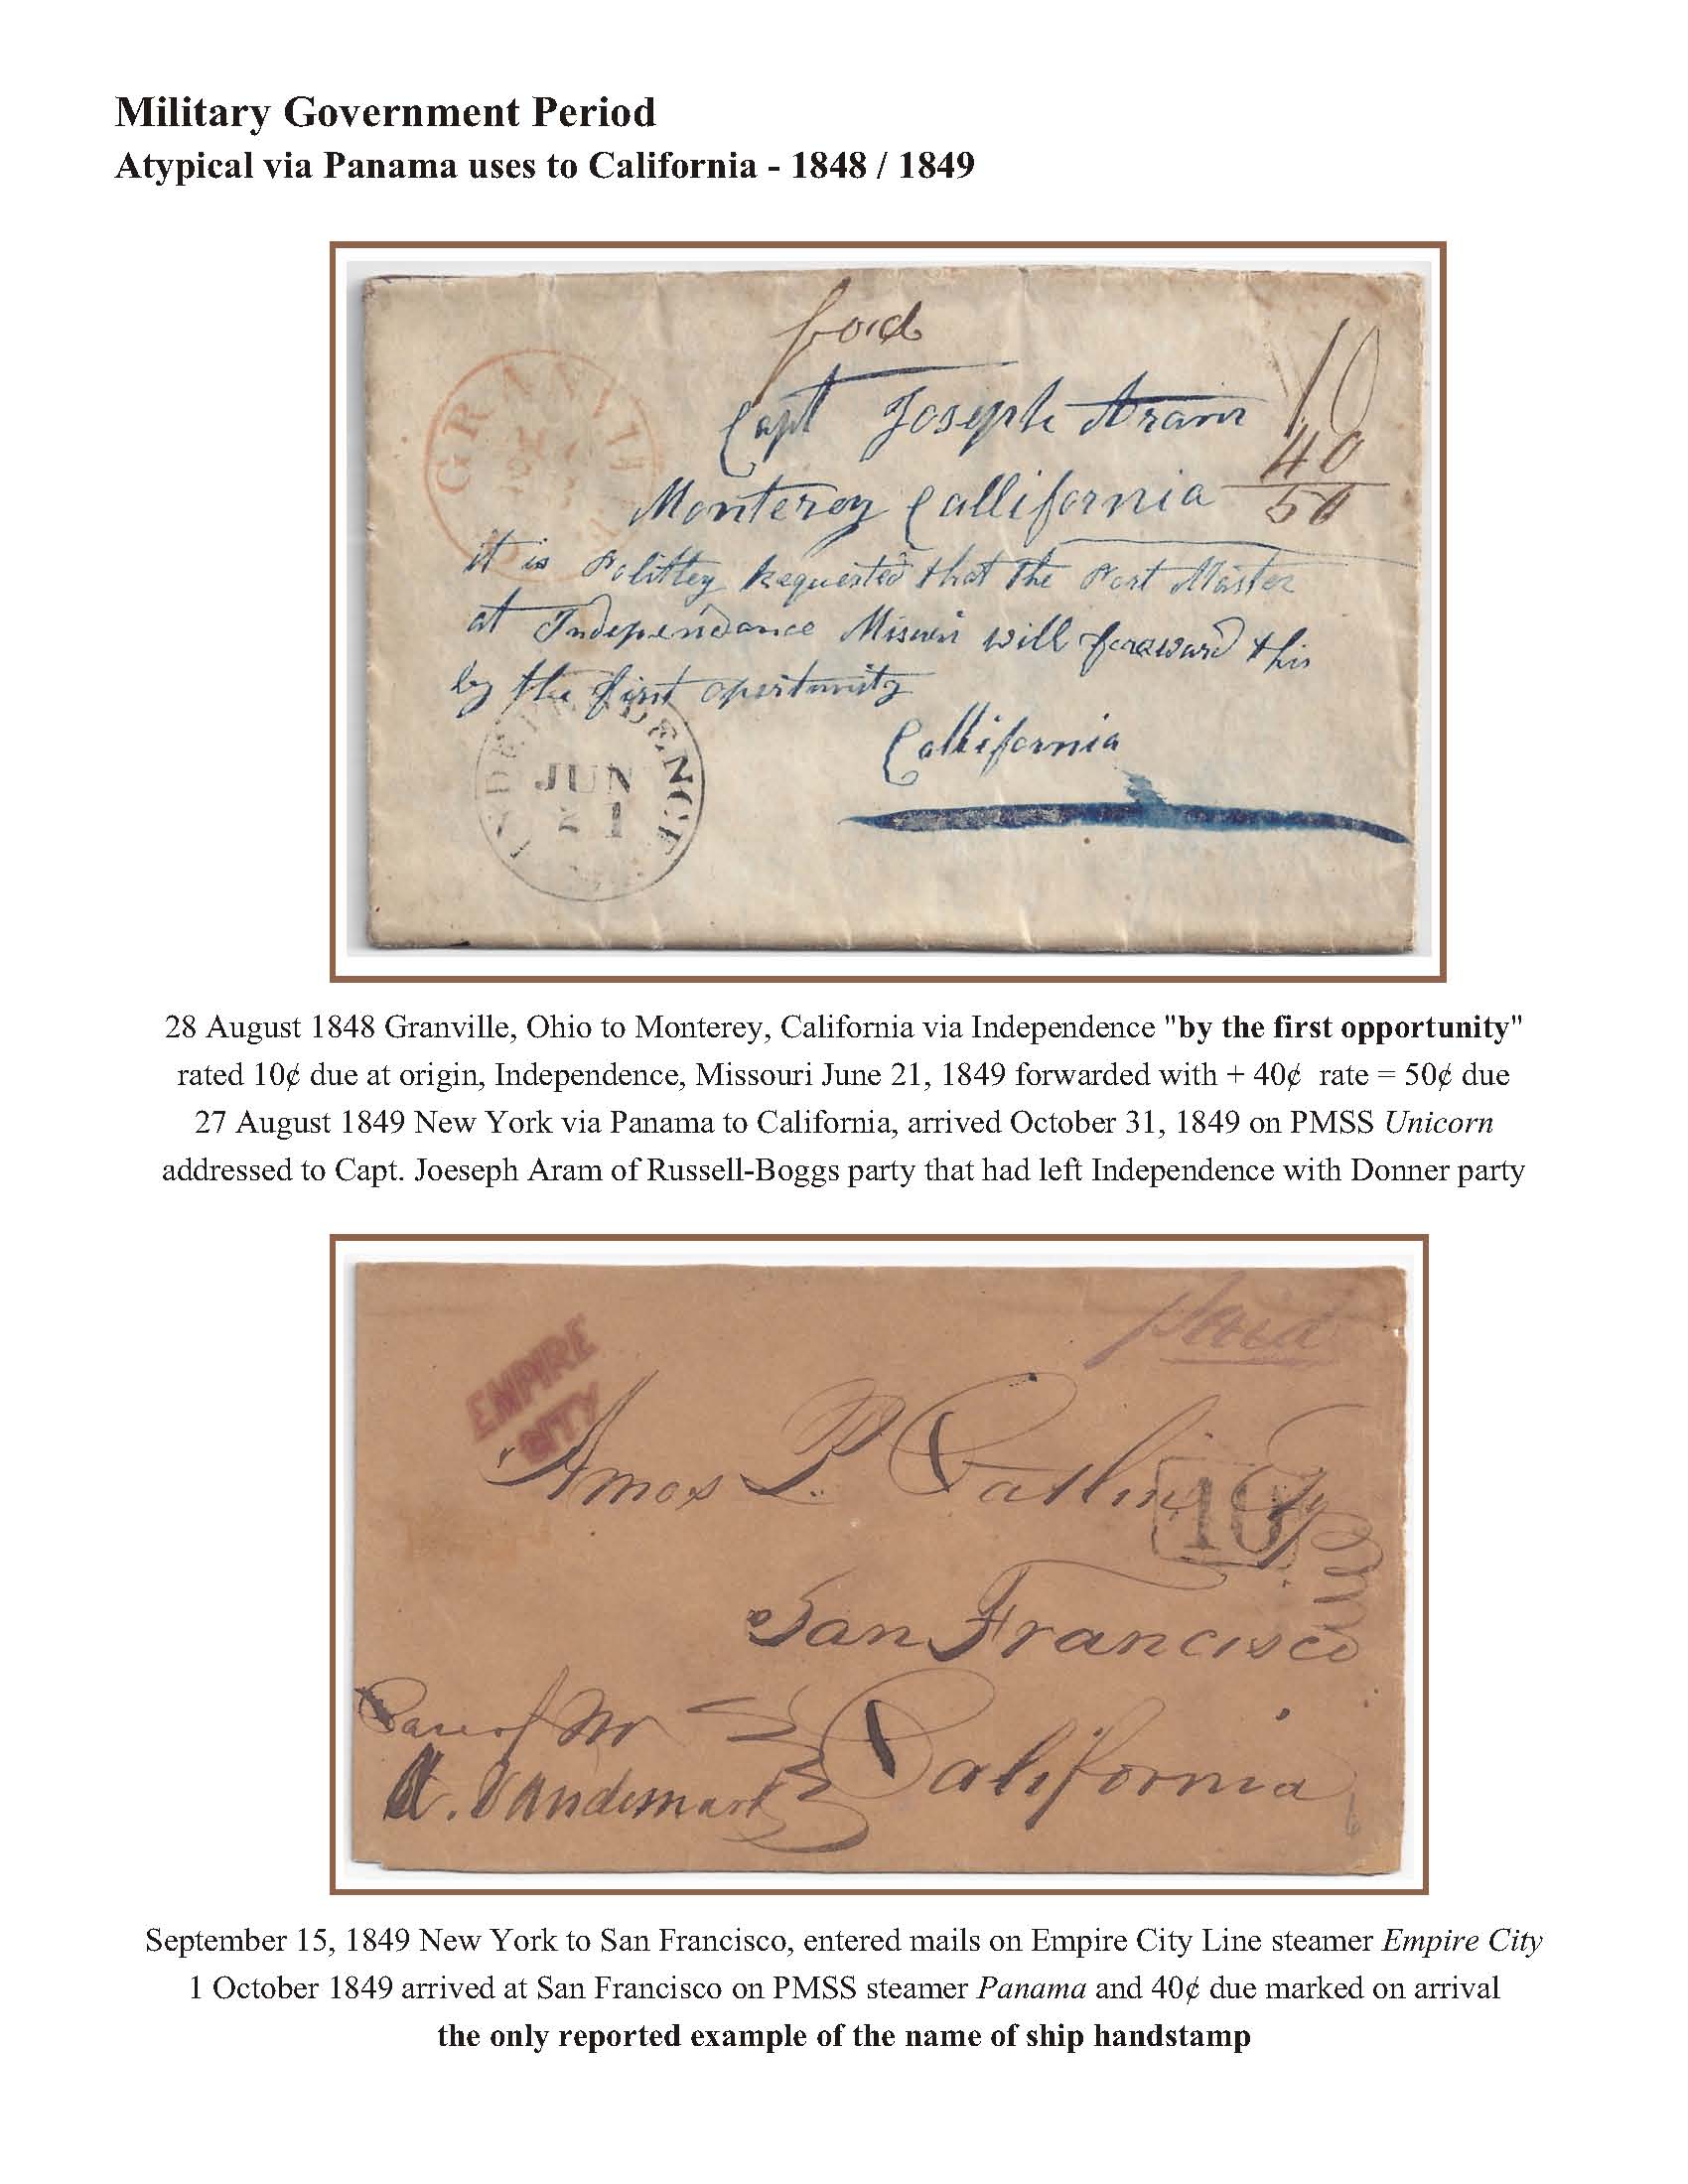 Military Government Period
Atypical via Panama uses to California - 1848 / 1849
ford
10
Capt Joseph Aram
40
Monterey Callifornia
50
GRANVILLE
it is Polittley Requested that the Post Master
at Independance Misuri will foreward this
by the first opertunity
Callifornia
INDEPENDENCE
JUN
21
28 August 1848 Granville, Ohio to Monterey, California via Independence "by the first opportunity"
rated 10¢ due at origin, Independence, Missouri June 21, 1849 forwarded with + 40¢ rate = 50¢ due
27 August 1849 New York via Panama to California, arrived October 31, 1849 on PMSS Unicorn
addressed to Capt. Joeseph Aram of Russell-Boggs party that had left Independence with Donner party
paid
EMPIRE
CITY
Amos P. Catlin Esq
10
San Francisco
Care of Mr
California
A. Vandemark
September 15, 1849 New York to San Francisco, entered mails on Empire City Line steamer Empire City
1 October 1849 arrived at San Francisco on PMSS steamer Panama and 40¢ due marked on arrival
the only reported example of the name of ship handstamp